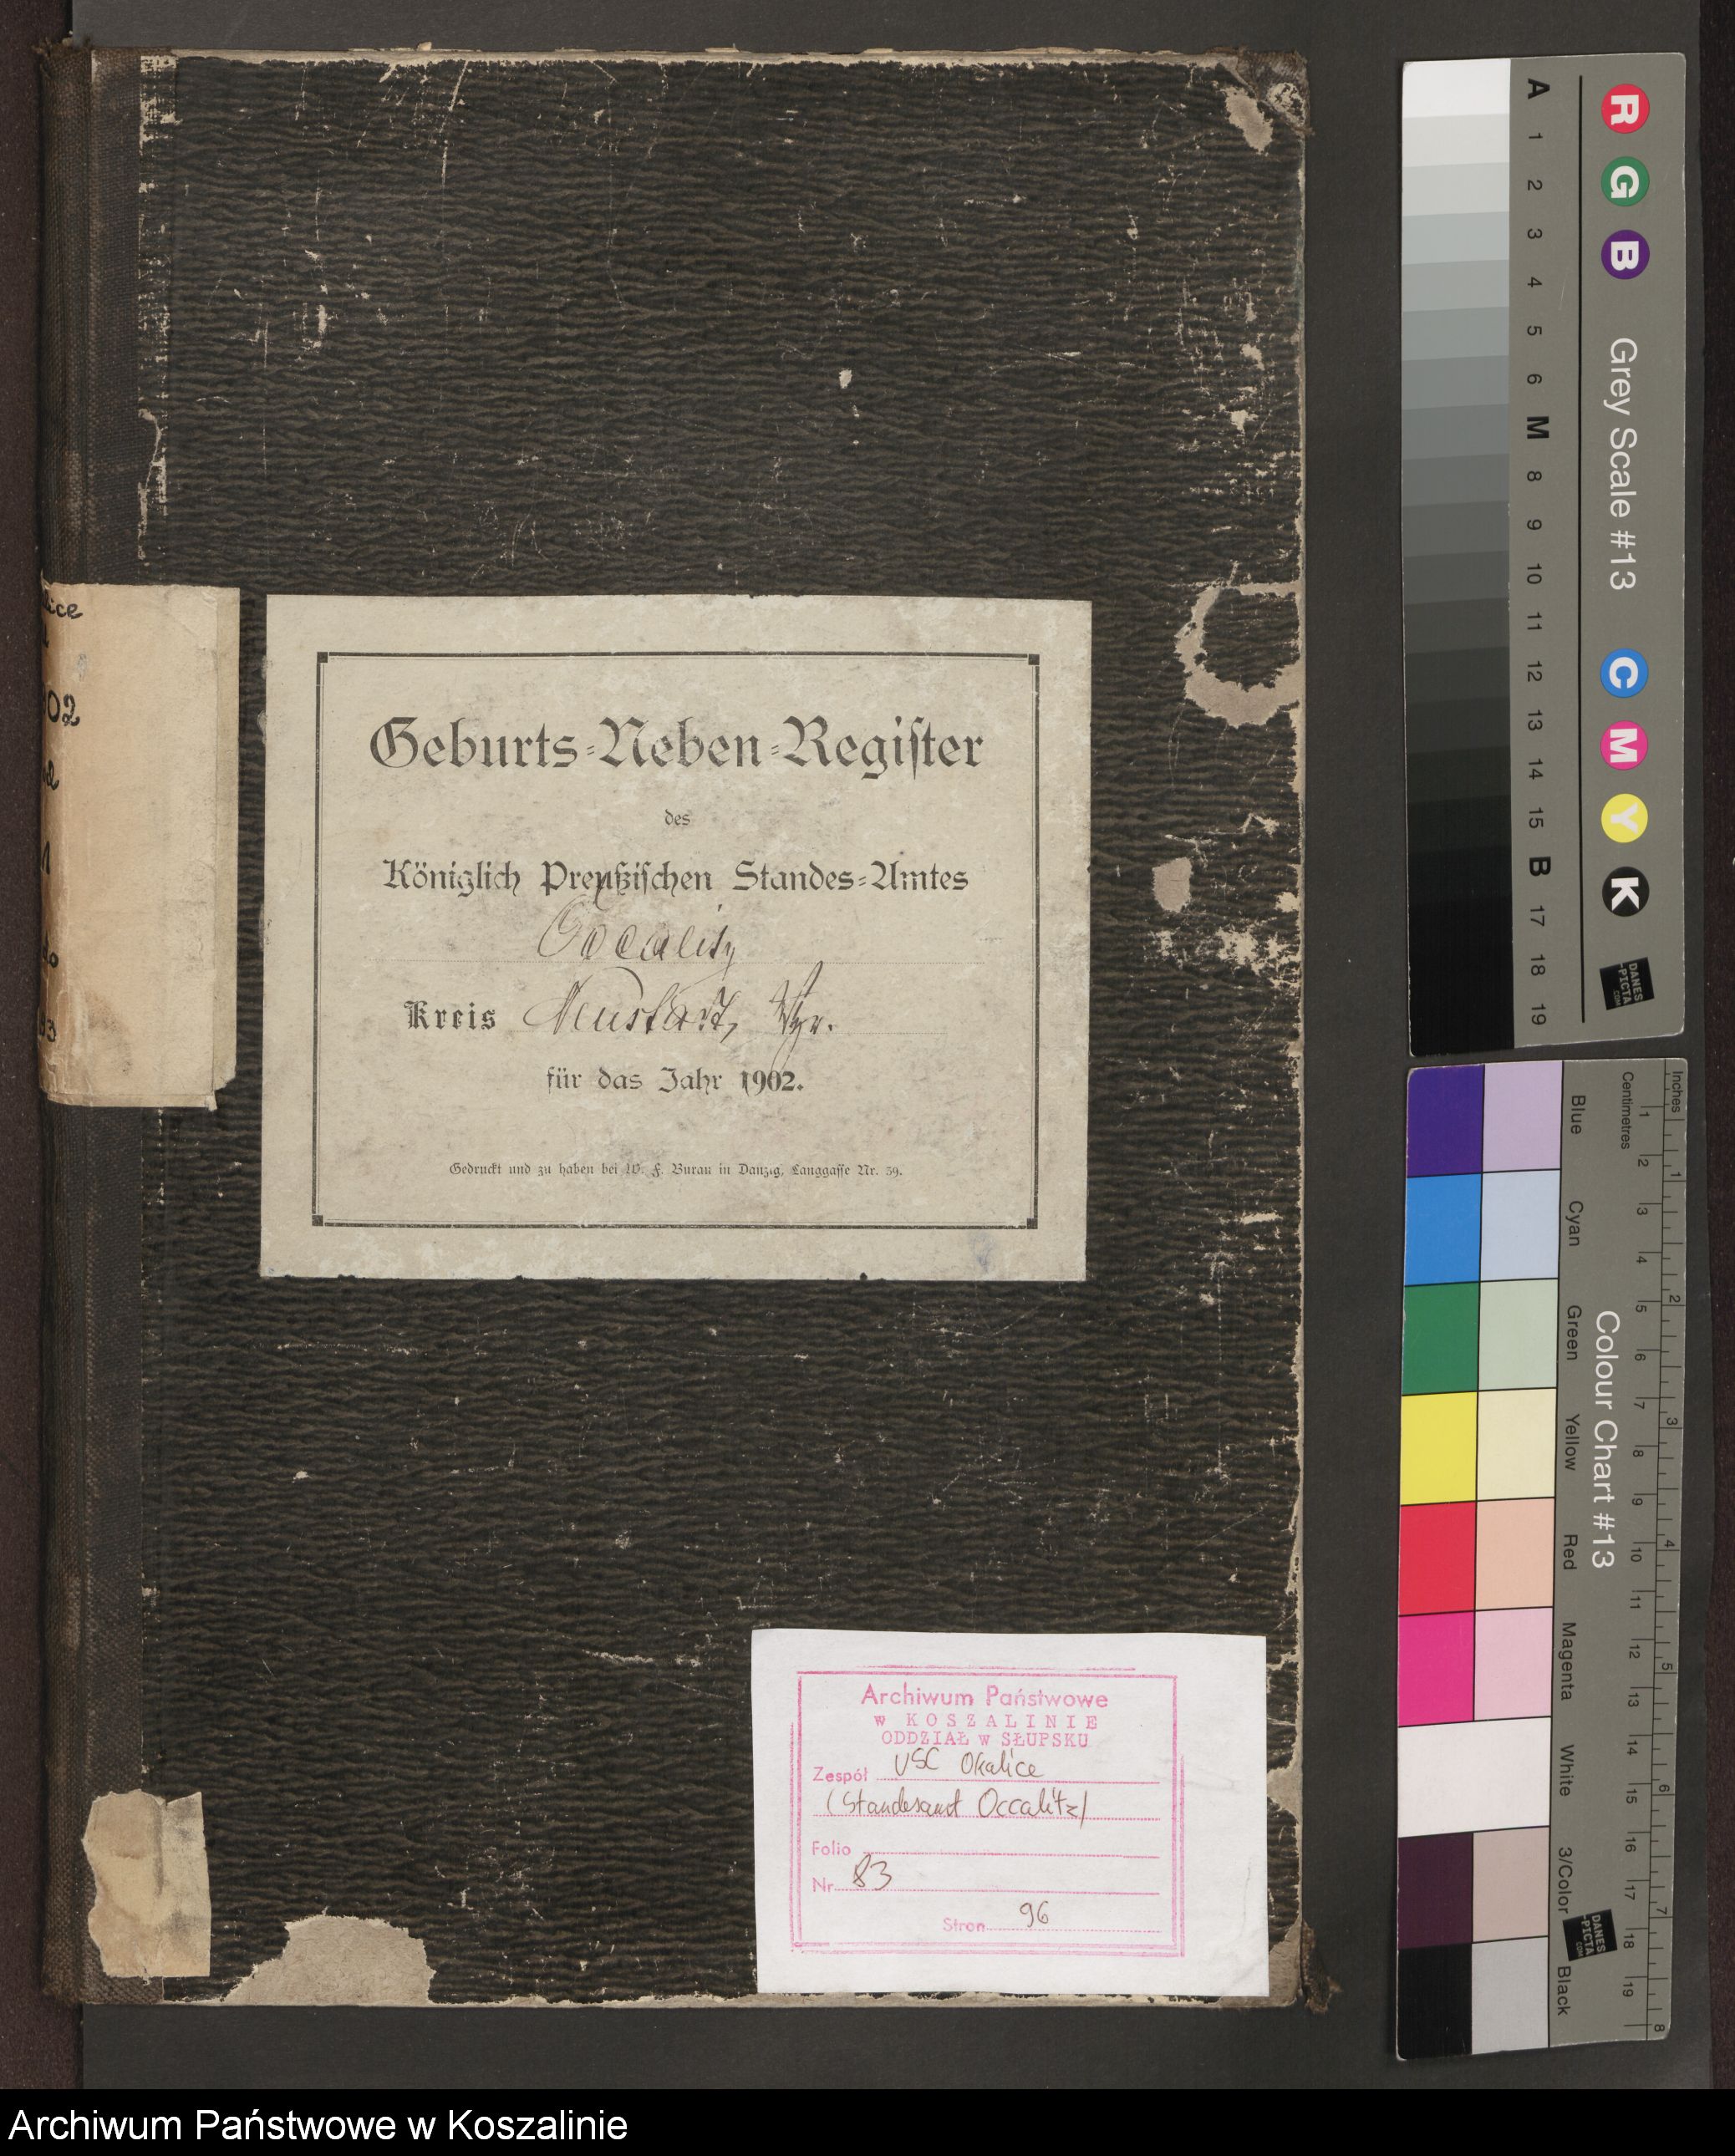 Geburts-Neben-Register
des
Königlich Preußischen Standes-Amtes
Occalitz
Kreis Neustadt, Wpr.
für das Jahr 1902.
Gedruckt und zu haben bei W. F. Burau in Danzig, Langgasse Nr. 39.
lice
02
93
Archiwum Państwowe
w KOSZALINIE
ODDZIAŁ w SŁUPSKU
Zespół USC Okalice
(Standesamt Occalitz)
Folio
Nr. 83
Stron 96
R G B Grey Scale #13 C M Y K
A 1 2 3 4 5 6 M 8 9 10 11 12 13 14 15 B 17 18 19
DANES
-PICTA
.COM
Inches 1 2 3 4 5 6 7 8
Centimetres 1 2 3 4 5 6 7 8 9 10 11 12 13 14 15 16 17 18 19
Colour Chart #13
Blue Cyan Green Yellow Red Magenta White 3/Color Black
DANES
-PICTA
.COM
Archiwum Państwowe w Koszalinie